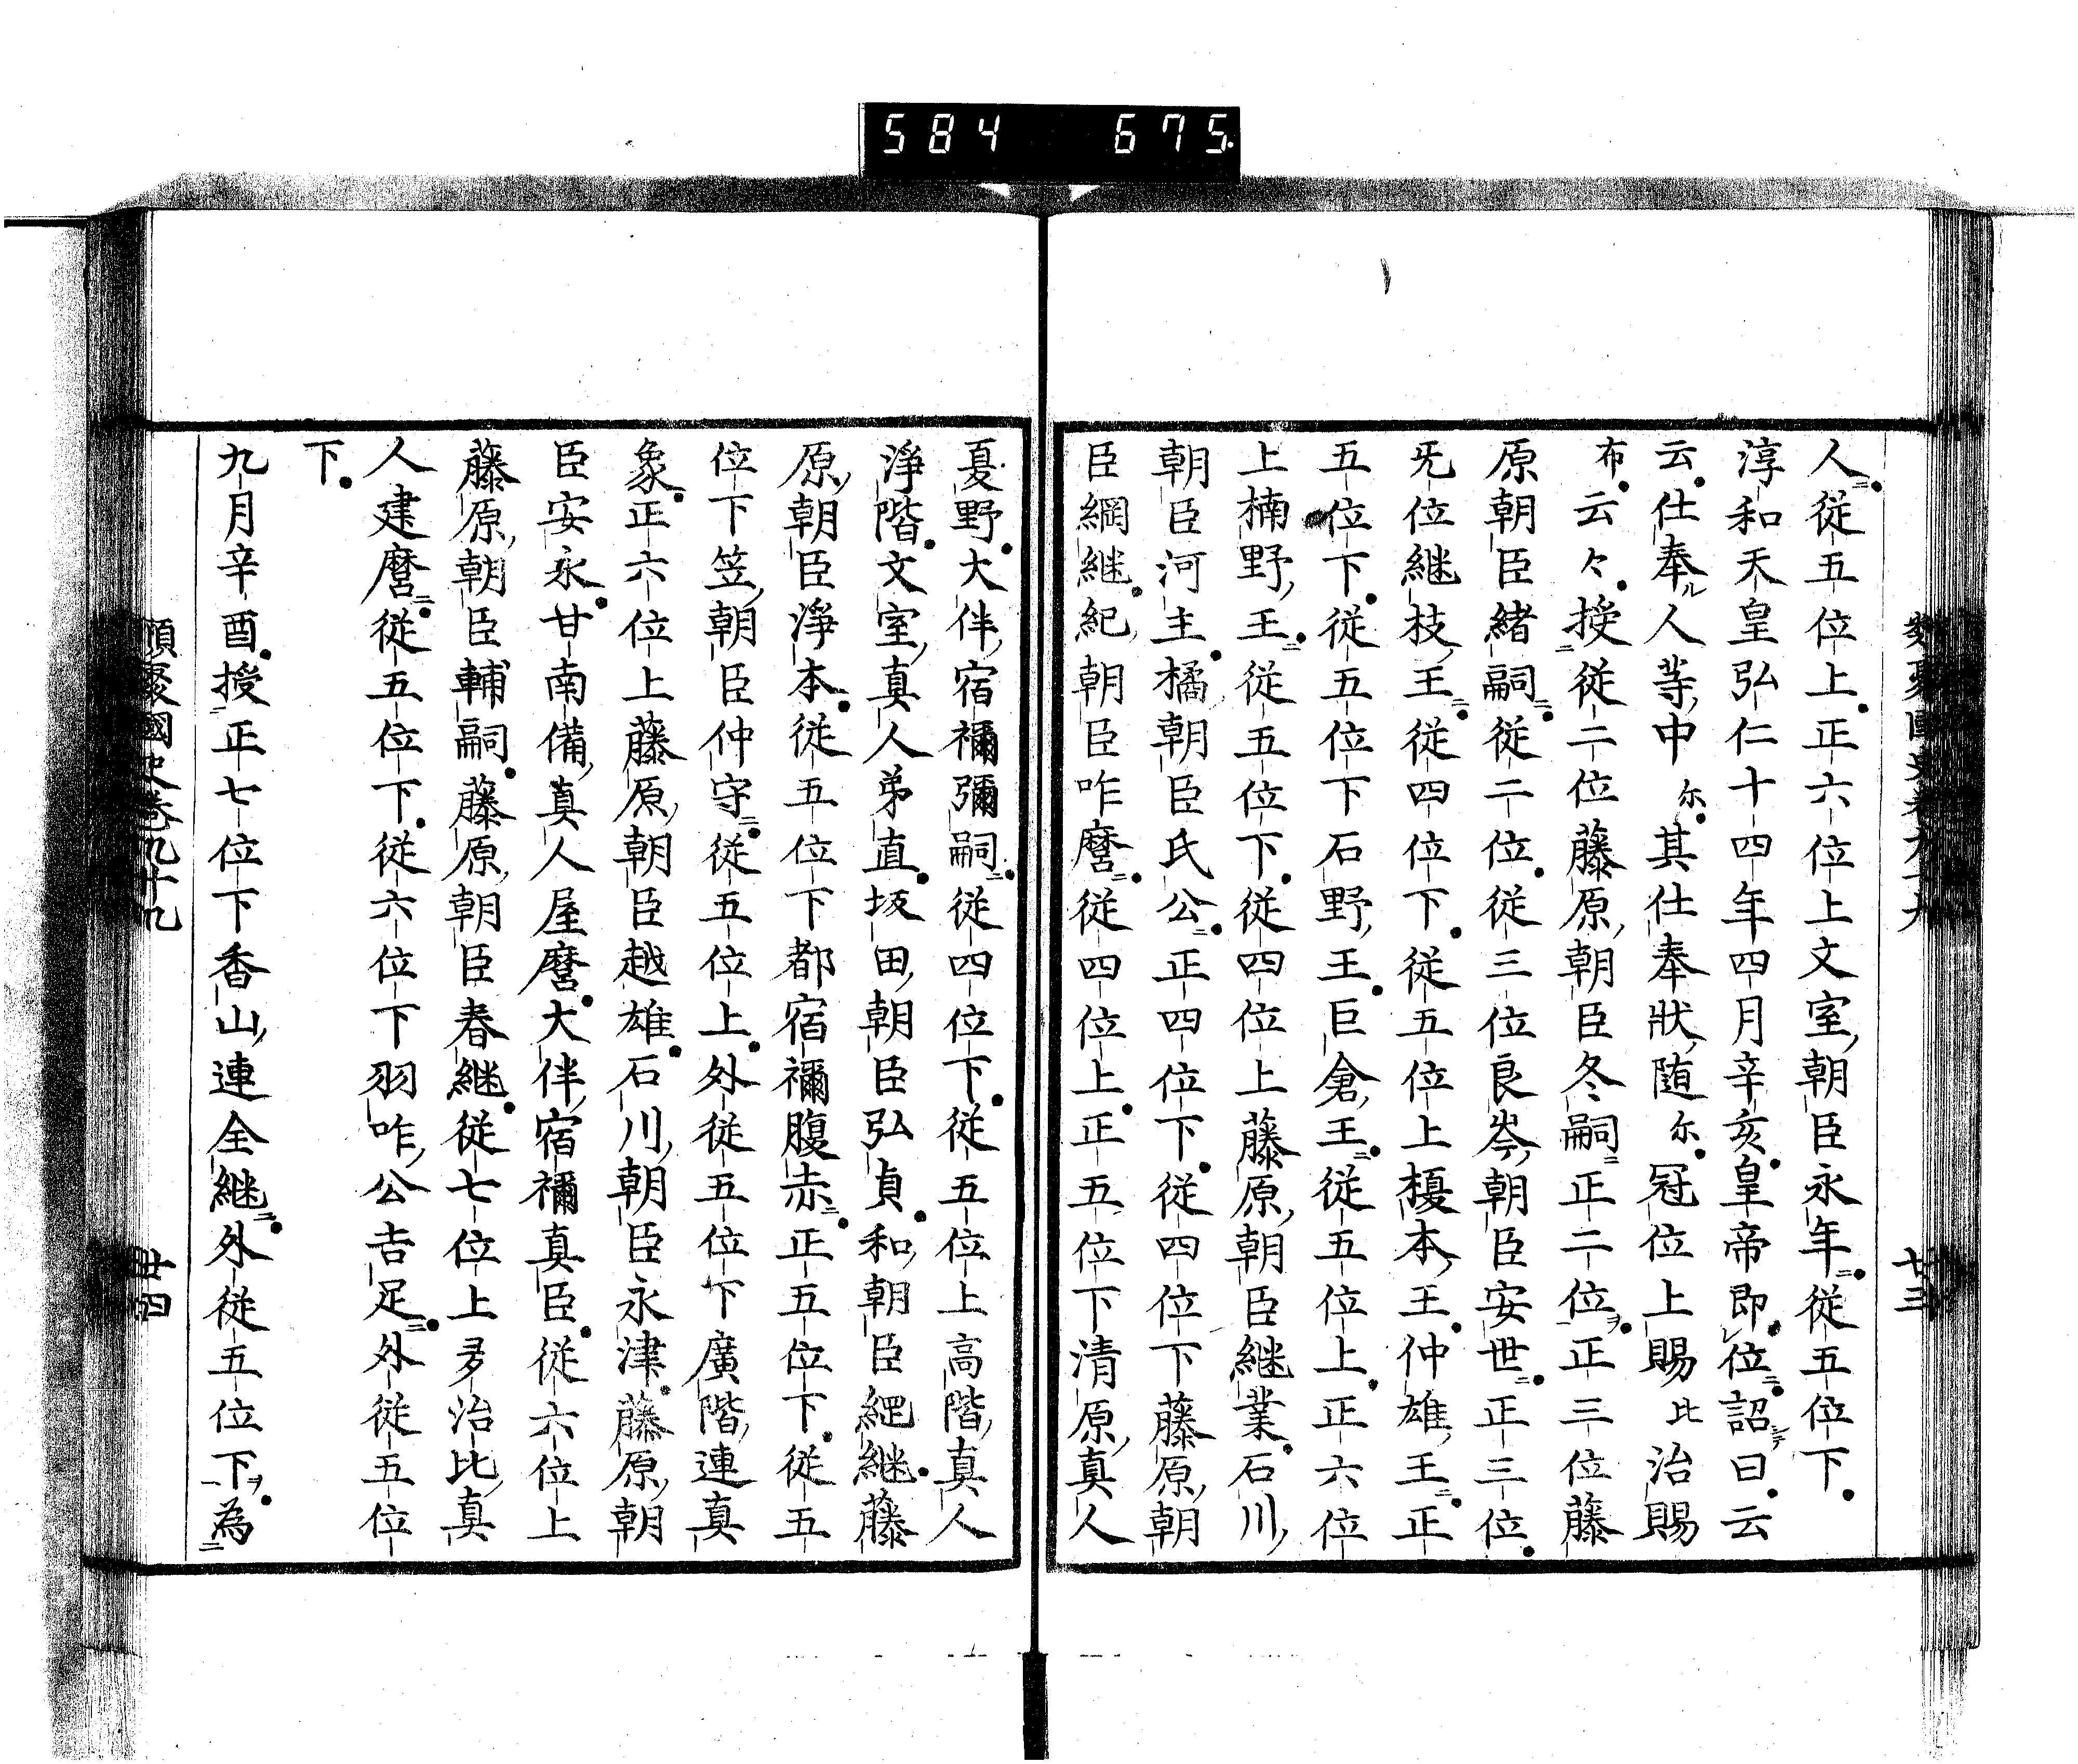 584 675
類聚國史卷九十九 廿三
人從五位上正六位上文室朝臣永年從五位下
淳和天皇弘仁十四年四月辛亥皇帝即位詔曰云
云仕奉ル人等中尓其仕奉狀随尓冠位上賜比治賜
布云々授從二位藤原朝臣冬嗣正二位ヲ正三位藤
原朝臣緒嗣從二位從三位良岑朝臣安世正三位
旡位継枝王從四位下從五位上榎本王仲雄王正
五位下從五位下石野王巨倉王從五位上正六位
上楠野王從五位下從四位上藤原朝臣継業石川
朝臣河主橘朝臣氏公正四位下從四位下藤原朝
臣綱継紀朝臣咋麿從四位上正五位下清原真人
夏野大伴宿禰彌嗣從四位下從五位上高階真人
淨階文室真人弟直坂田朝臣弘貞和朝臣縄継藤
原朝臣淨本從五位下都宿禰腹赤正五位下從五
位下笠朝臣仲守從五位上外從五位下廣階連真
象正六位上藤原朝臣越雄石川朝臣永津藤原朝
臣安永甘南備真人屋麿大伴宿禰真臣從六位上
藤原朝臣輔嗣藤原朝臣春継從七位上多治比真
人建麿從五位下從六位下羽咋公吉足外從五位
下
九月辛酉授正七位下香山連全継外從五位下ヲ為
類聚國史卷九十九 廿四